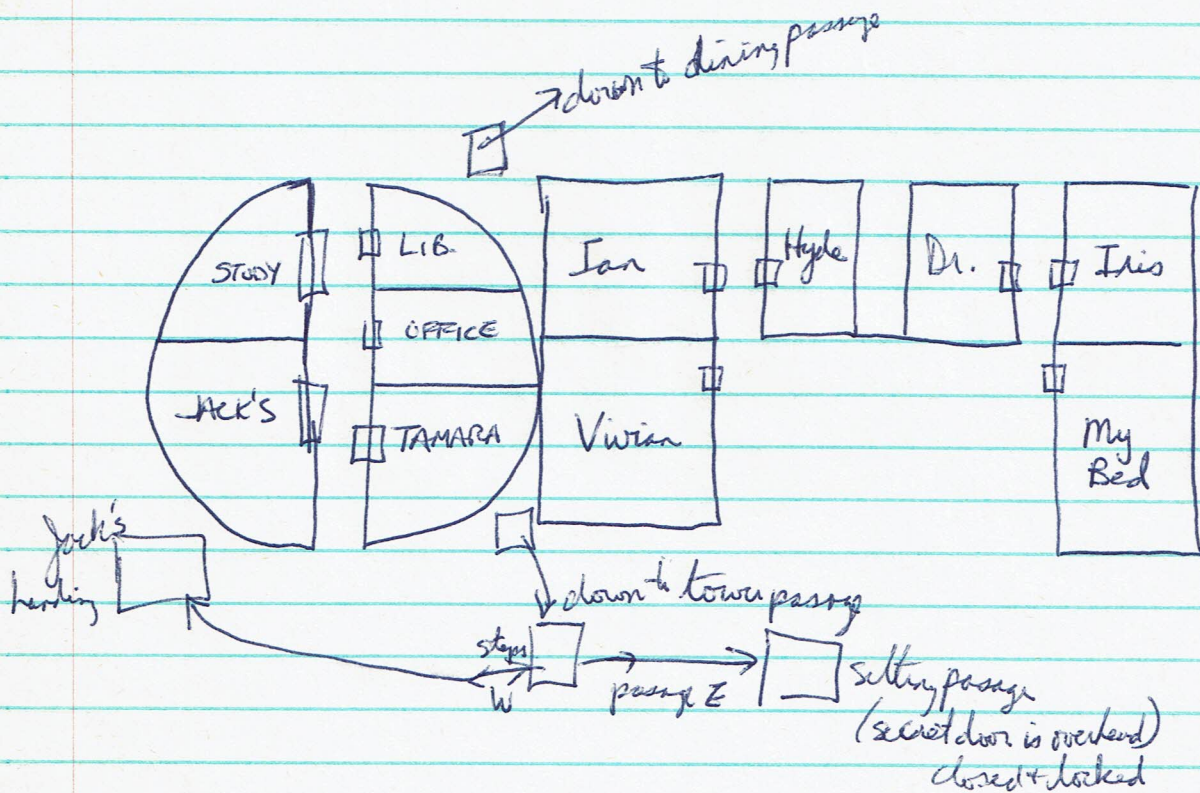 down to dining passage
STUDY
LIB.
OFFICE
JACK'S
TAMARA
Ian
Hyde
Dr.
Iris
Vivian
My
Bed
Jack's
landing
down to tower passage
steps
W
passage E
sitting passage
(secret door is overhead)
closed + locked